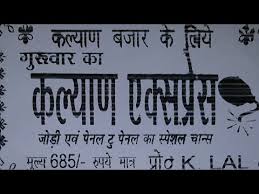 कल्याण बजार के लिये
गुरूवार का
कल्याण एक्सप्रेस
जोड़ी एवं पेनल टु पेनल का स्पेशल चान्स
मूल्य 685/- रुपये मात्र प्रो० K. LAL